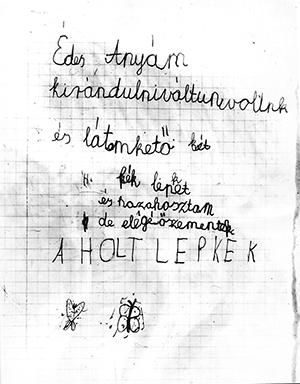 Édes Anyám
kirándulniváltunevoltnk
és látomkető két
kék lepkét
és hazahosztam
de elégőszementek
A HOLT LEPKEK